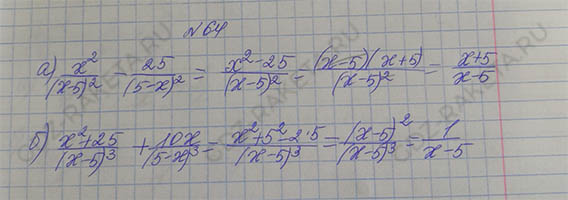 №64
а) x²/(x-5)² - 25/(5-x)² = x²-25/(x-5)² - (x-5)(x+5)/(x-5)² = x+5/x-5
б) x²+25/(x-5)³ + 10x/(5-x)³ = x²+5²-2·5/(x-5)³ = (x-5)²/(x-5)³ = 1/x-5